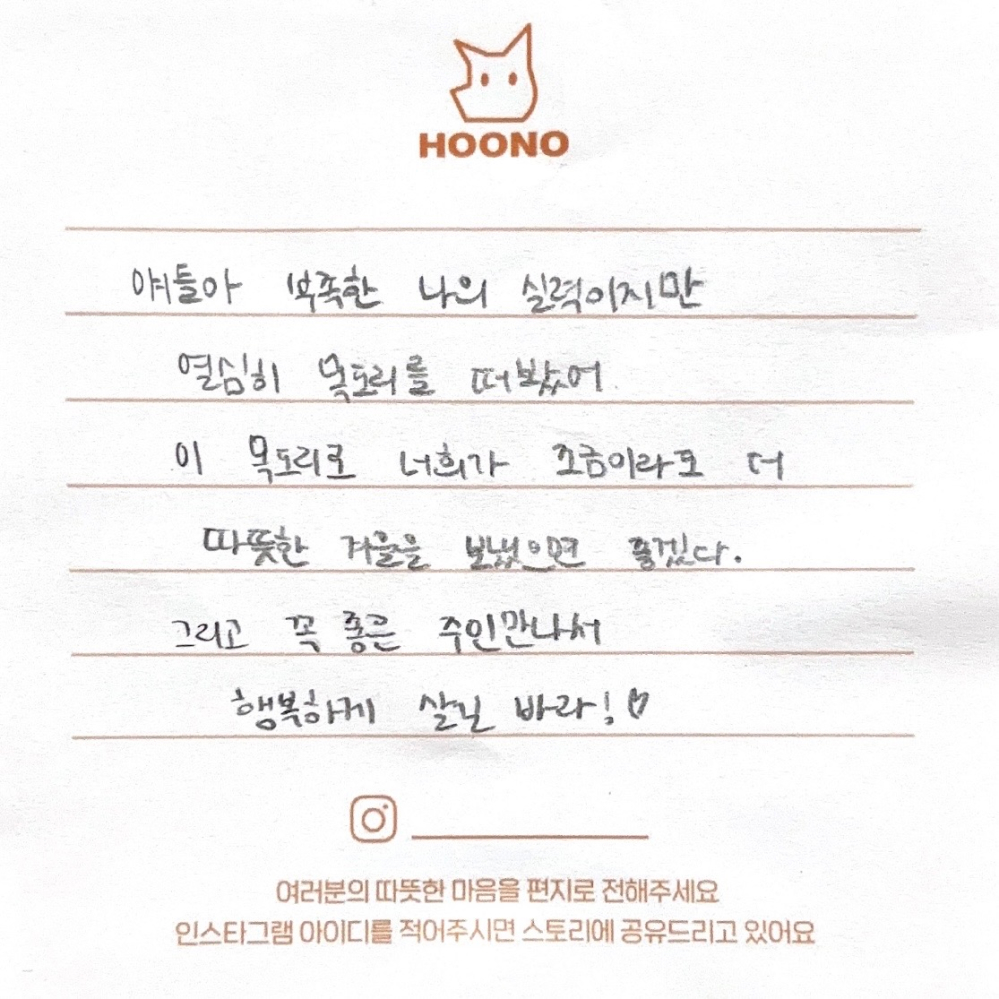 HOONO
얘들아 부족한 나의 실력이지만
열심히 목도리를 떠봤어
이 목도리로 너희가 조금이라도 더
따뜻한 겨울을 보냈으면 좋겠다.
그리고 꼭 좋은 주인만나서
행복하게 살길 바라!♡
여러분의 따뜻한 마음을 편지로 전해주세요
인스타그램 아이디를 적어주시면 스토리에 공유드리고 있어요